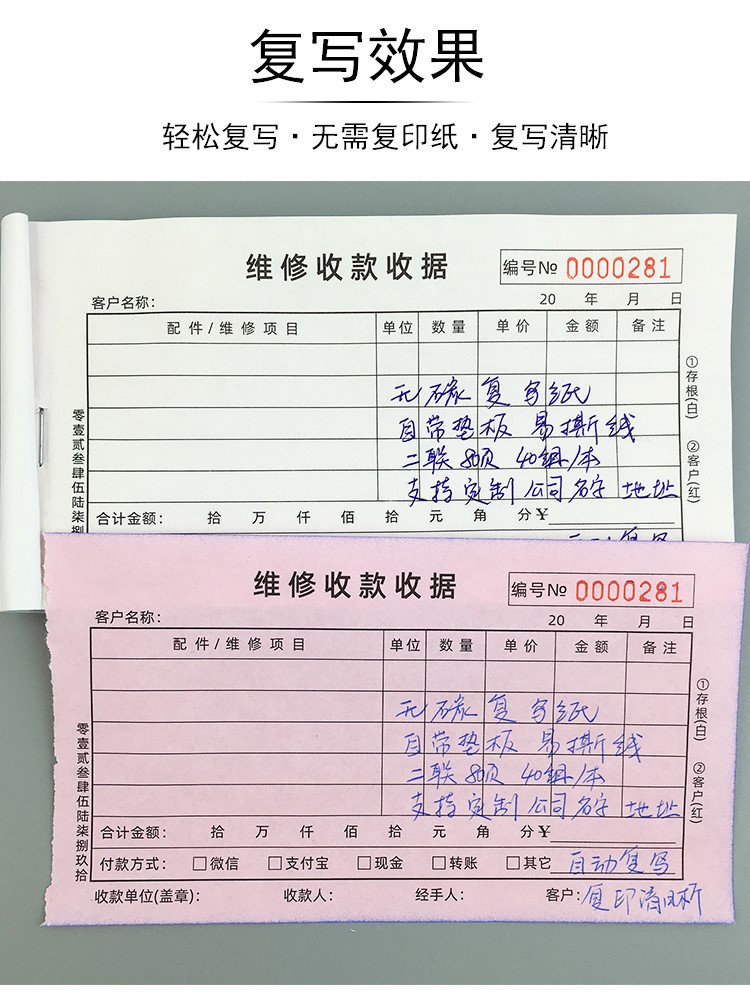 复写效果
轻松复写·无需复印纸·复写清晰
维修收款收据
编号№ 0000281
客户名称：
20 年 月 日
配件/维修项目 单位 数量 单价 金额 备注
无碳复写纸
自带垫板 易撕线
二联 80页 40组/本
支持定制 公司名字 地址
合计金额： 拾 万 仟 佰 拾 元 角 分¥
零壹贰叁肆伍陆柒捌
①存根(白) ②客户(红)
维修收款收据
编号№ 0000281
客户名称：
20 年 月 日
配件/维修项目 单位 数量 单价 金额 备注
无碳复写纸
自带垫板 易撕线
二联 80页 40组/本
支持定制 公司名字 地址
合计金额： 拾 万 仟 佰 拾 元 角 分¥
付款方式： □微信 □支付宝 □现金 □转账 □其它 自动复写
收款单位(盖章)： 收款人： 经手人： 客户：复印清晰
零壹贰叁肆伍陆柒捌玖拾
①存根(白) ②客户(红)